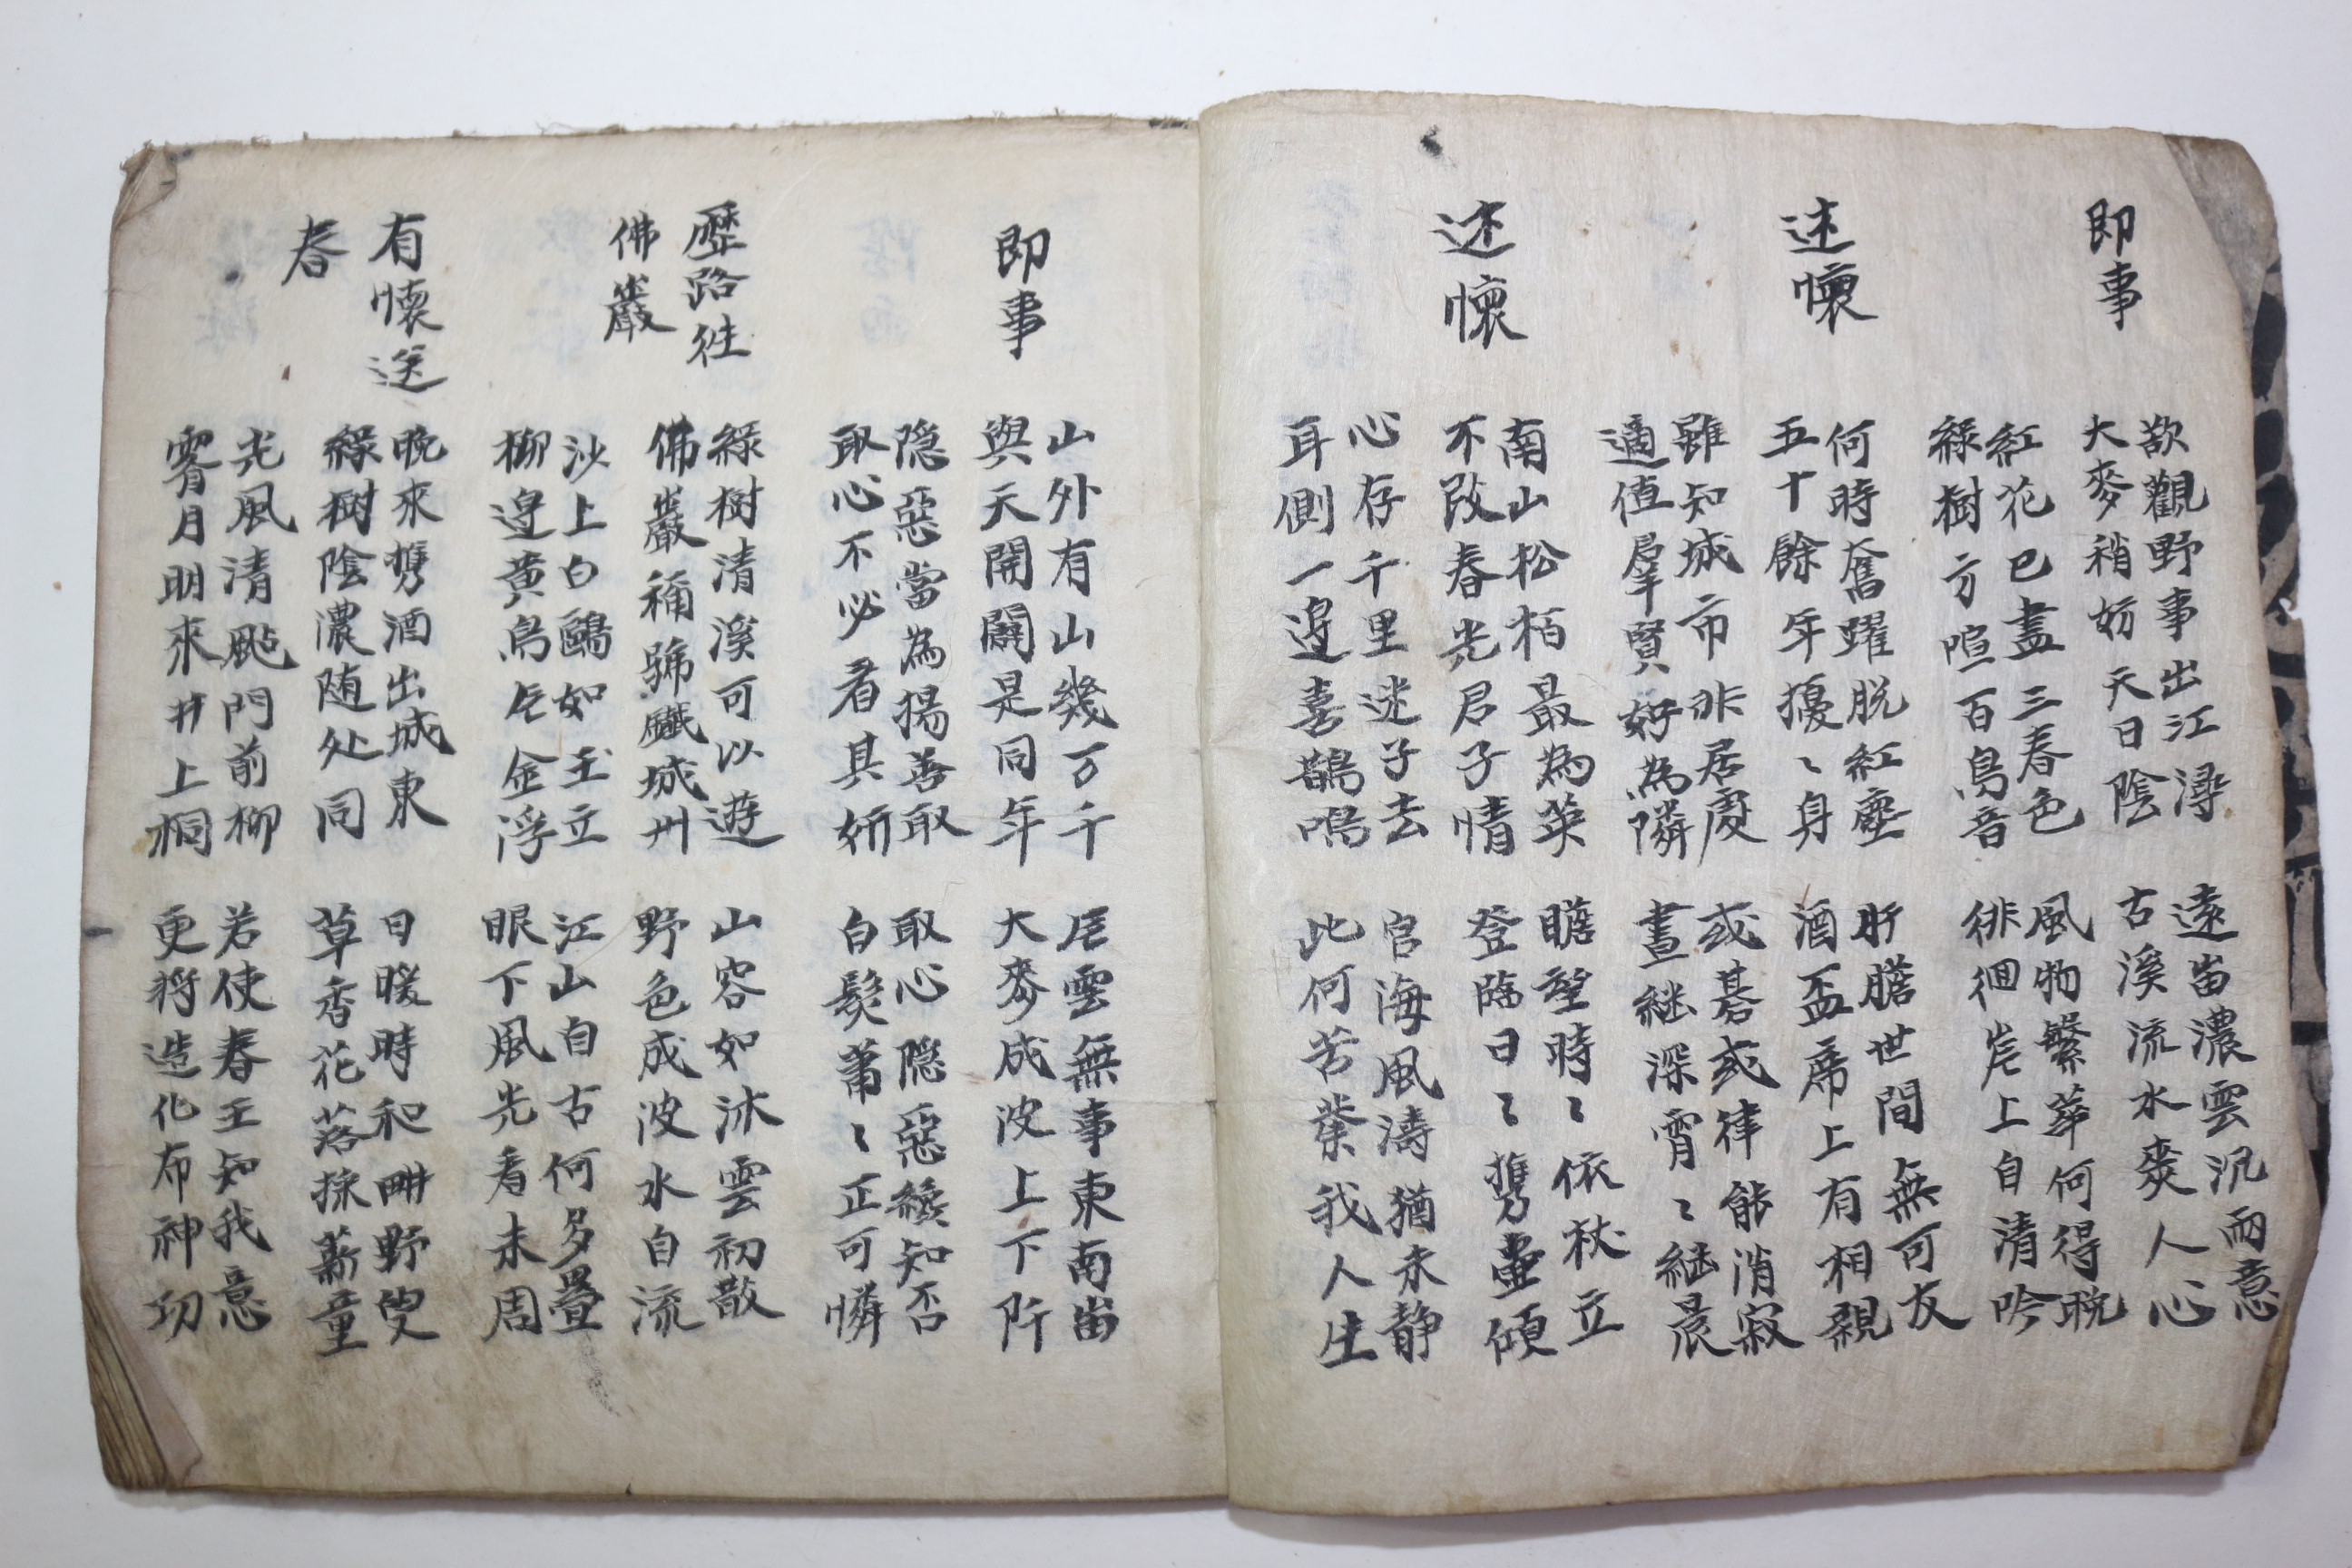 即事
欲觀野事出江潯
大麥稍妨天日陰
遠峀濃雲汎雨意
古溪流水爽人心
紅花已盡三春色
綠樹方喧百鳥音
風物繁華何得晩
徘徊岸上自清吟
述懷
何時奮躍脫紅塵
五十餘年擾〻身
肝膽世間無可友
酒盃席上有相親
雖知城市非居處
適値羣賢好為隣
或碁或律能消寂
晝継深霄〻継晨
述懷
南山松栢最為榮
不改春光君子情
瞻望時〻依杖立
登臨日〻携壷傾
心存千里迷子去
耳側一邊喜鵲鳴
宦海風濤猶未静
此何苦業我人生
即事
山外有山幾万千
與天開闢是同年
雲無事東南峀
大麥成波上下阡
隠惡當為揚善取
取心不必看其妍
取心隠惡纔知否
白髮蕭〻正可憐
歷路往
佛巖
綠樹清溪可以遊
佛巖稱號鐵城州
山容如沐雲初散
野色成波水自流
沙上白鷗如玉立
柳邊黃鳥乍金浮
江山自古何多疊
眼下風光看未周
有懷送
春
晩來携酒出城東
綠樹陰濃随处同
日暖時和畊野叟
草香花落採薪童
光風清颭門前柳
霽月明來井上桐
若使春王知我意
更將造化布神功